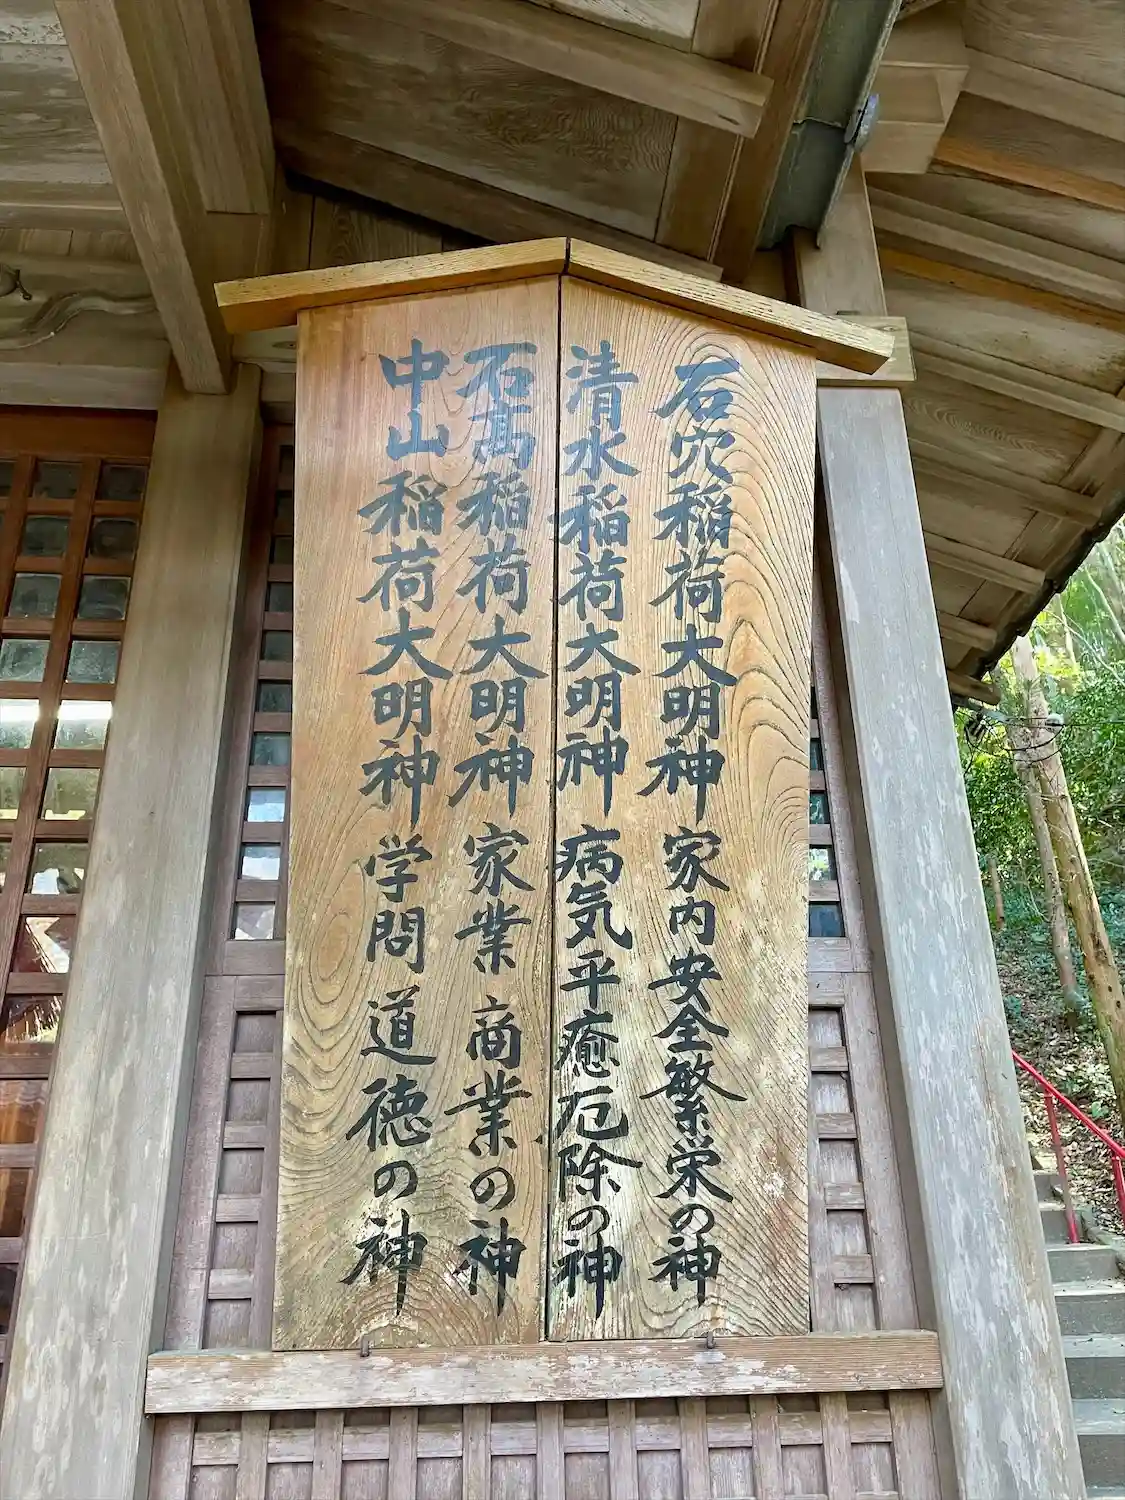 石穴稲荷大明神 家内安全繁栄の神
清水稲荷大明神 病気平癒厄除の神
石高稲荷大明神 家業 商業の神
中山稲荷大明神 学問 道徳の神